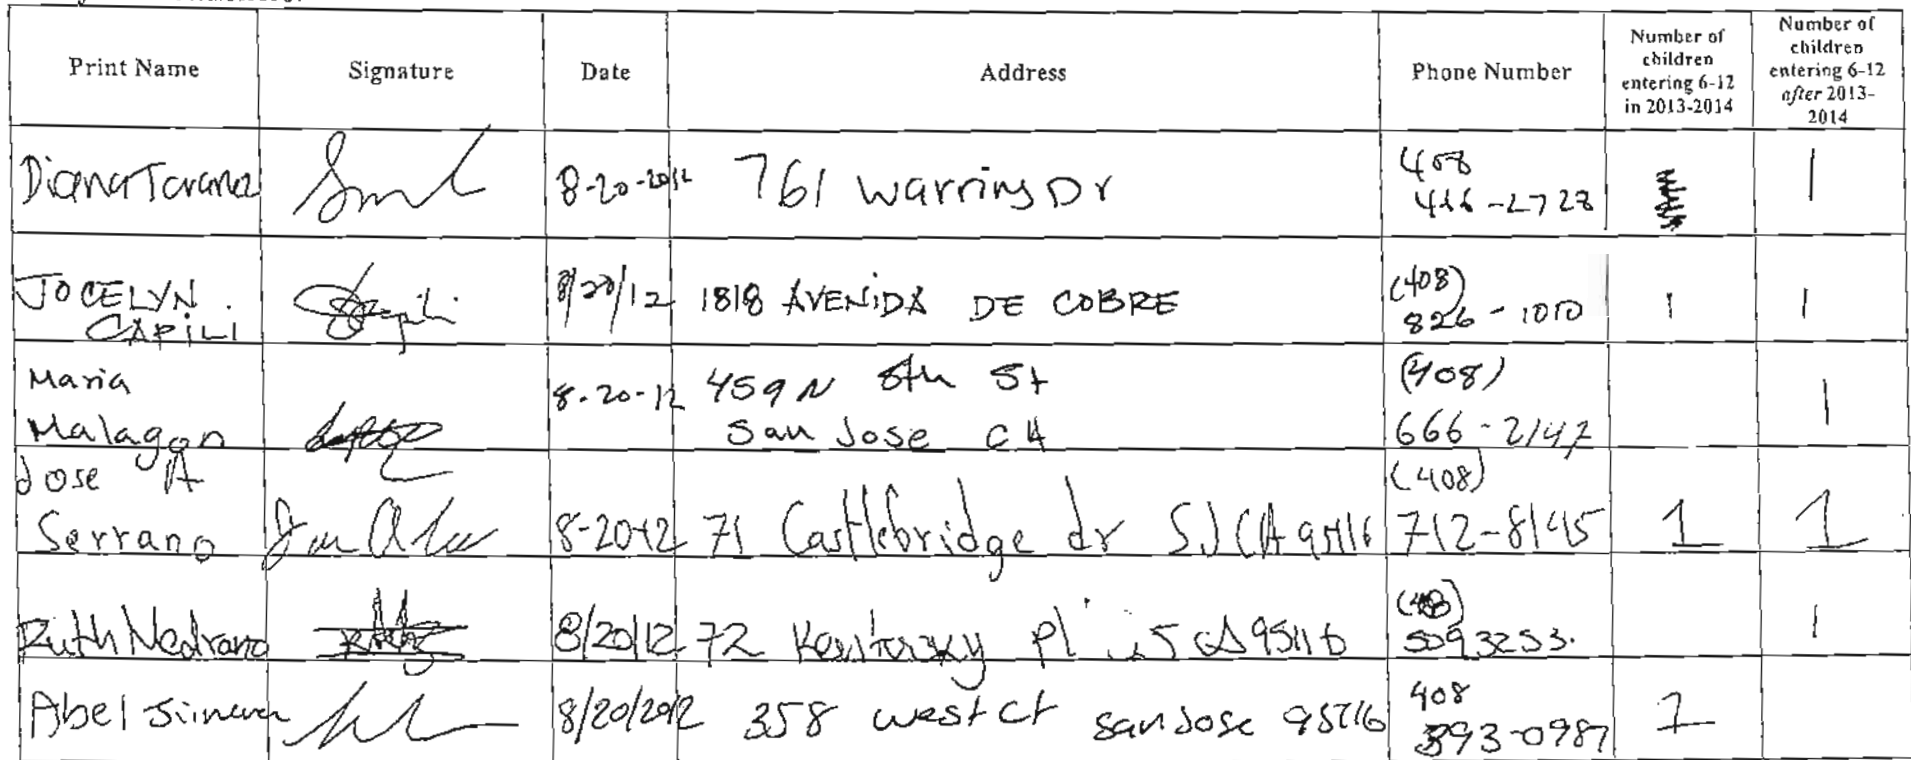 Print Name
Signature
Date
Address
Phone Number
Number of
children
entering 6-12
in 2013-2014
Number of
children
entering 6-12
after 2013-
2014
8-20-2012
761 Warring Dr
408
1
JOCELYN
CAPILI
8/20/12
1818 AVENIDA DE COBRE
(408)
826-1010
1
1
Maria
Malagon
8-20-12
459 N 8th St
San Jose CA
(408)
666-2147
1
Jose A
Serrano
8-20-12
71 Castlebridge dr SJ CA 95116
(408)
712-8145
1
1
Ruth
8/20/12
72 Pl 95116
(408)
5093253.
1
Abel
8/20/2012
358 west ct san Jose 95116
408
393-0987
1